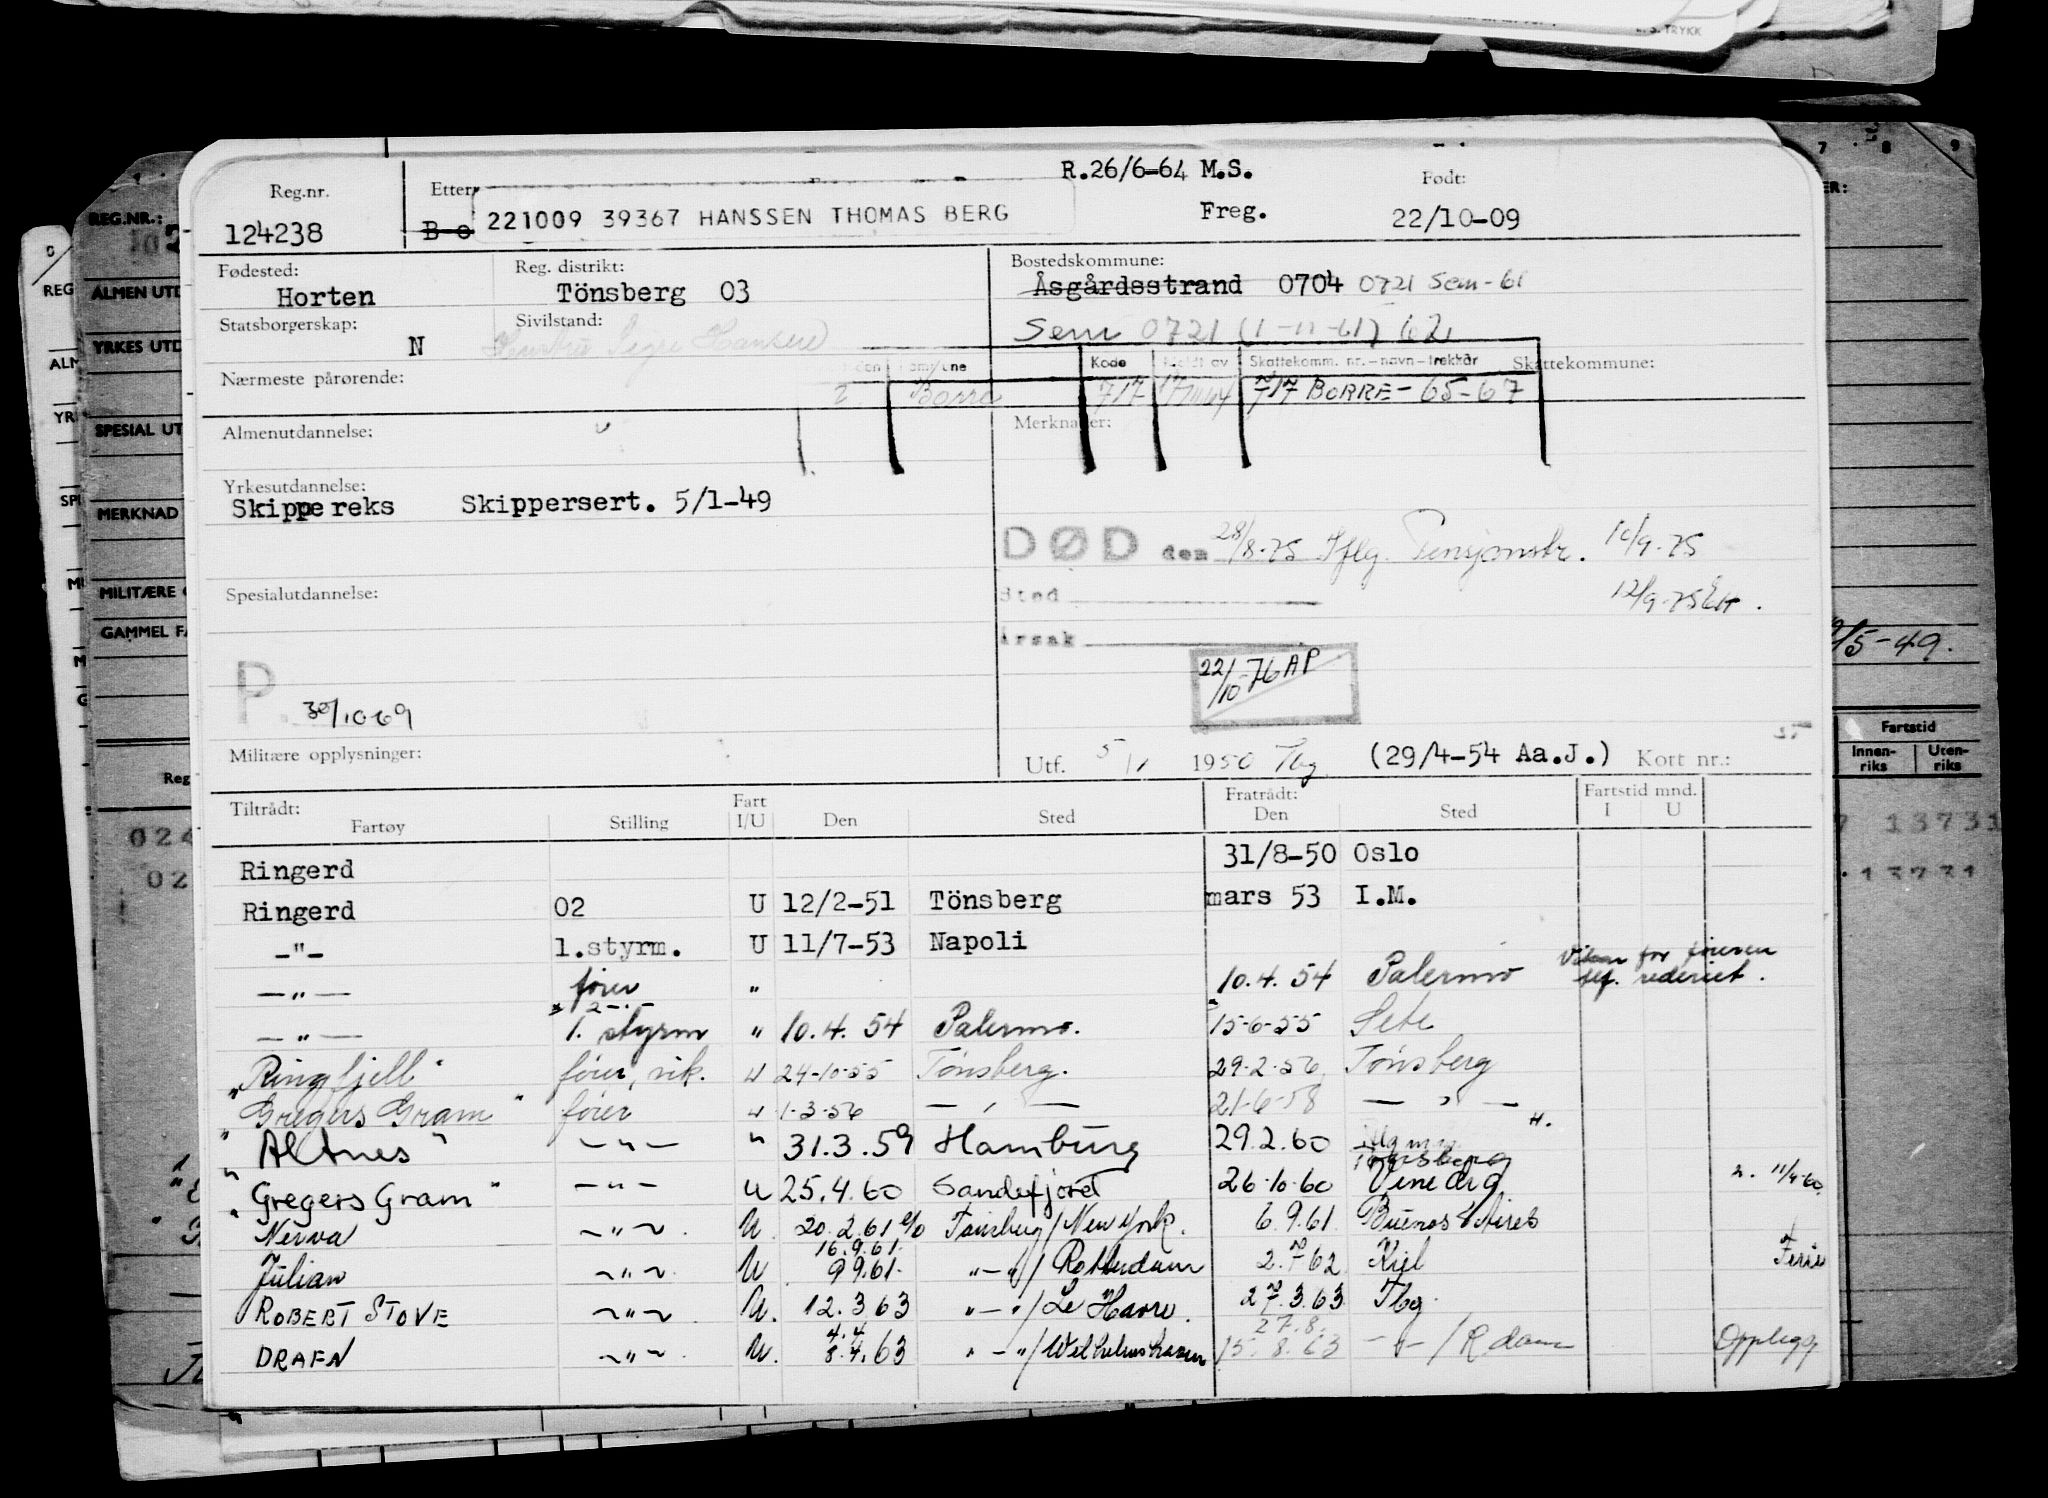 R.26/6-64 M.S.
Reg.nr. Etter Født:
124238 B-e 221009 39367 HANSSEN THOMAS BERG Freg. 22/10-09
Fødested: Reg. distrikt: Bostedskommune:
Horten Tönsberg 03 Åsgårdsstrand 0704 0721 Sem-61
Statsborgerskap: Sivilstand: Sem 0721 (1-11-61) 62
N Hustru
Nærmeste pårørende: Kode Skattekomm. nr.-navn-trekkår Skattekommune:
2. Borre 717 717 BORRE - 65-67
Almenutdannelse: Merknader:
Yrkesutdannelse:
Skippereks Skippersert. 5/1-49
DØD den 28/8-75 Iflg. Pensjonstr. 10/9-75
Spesialutdannelse: Sted 12/9-75
Årsak
22/10-76 AP
P. 30/10 69
Militære opplysninger: Utf. 5/1 1950 Tbg (29/4-54 Aa.J.) Kort nr.:
Tiltrådt: Fart Fratrådt: Fartstid mnd.
Fartøy Stilling I/U Den Sted Den Sted I U
Ringerd 31/8-50 Oslo
Ringerd 02 U 12/2-51 Tönsberg mars 53 I.M.
-"- 1.styrm. U 11/7-53 Napoli
-"- fører " 10.4.54 Palermo for føreren tlf. rederiet.
-"- 1. styrm " 10.4.54 Palermo. 15-6-55 Sete
"Ringfjell" fører, vik. U 24-10-55 Tönsberg. 29-2-56 Tönsberg
"Gregers Gram" fører U 1-3-56 -"- 21-6-58 -"-
"Altnes" -"- " 31.3.59 Hamburg 29.2.60
"Gregers Gram" -"- U 25.4.60 Sandefjord 26-10-60 Venedig
Nerva -"- U. 20.2.61 Tönsberg/New York. 6.9.61 Buenos Aires
Julian -"- U 16.9.61. 9 9.61. -"-/Rotterdam 2.7.62 Kiel Ferie
ROBERT STOVE -"- U. 12.3 63 -"-/Le Havre. 27.3.63 Tbg.
DRAFN -"- U. 4.4 8.4.63 -"-/Wilhelmshaven 27.8. 15.8.63 -"-/R.dam Opplegg
REG.NR.:
ALMEN UTD
YRKES UTD
SPESIAL UT
MERKNAD
MILITÆRE
GAMMEL FA
/5-49.
Fartstid
Innen-riks Uten-riks
024 13731
02 13731